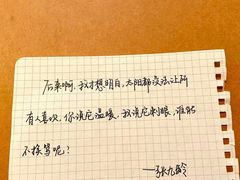 后来啊,我才想明白,太阳都没法让所
有人喜欢,你说它温暖,我说它刺眼,谁能
不挨骂呢?
——张九龄